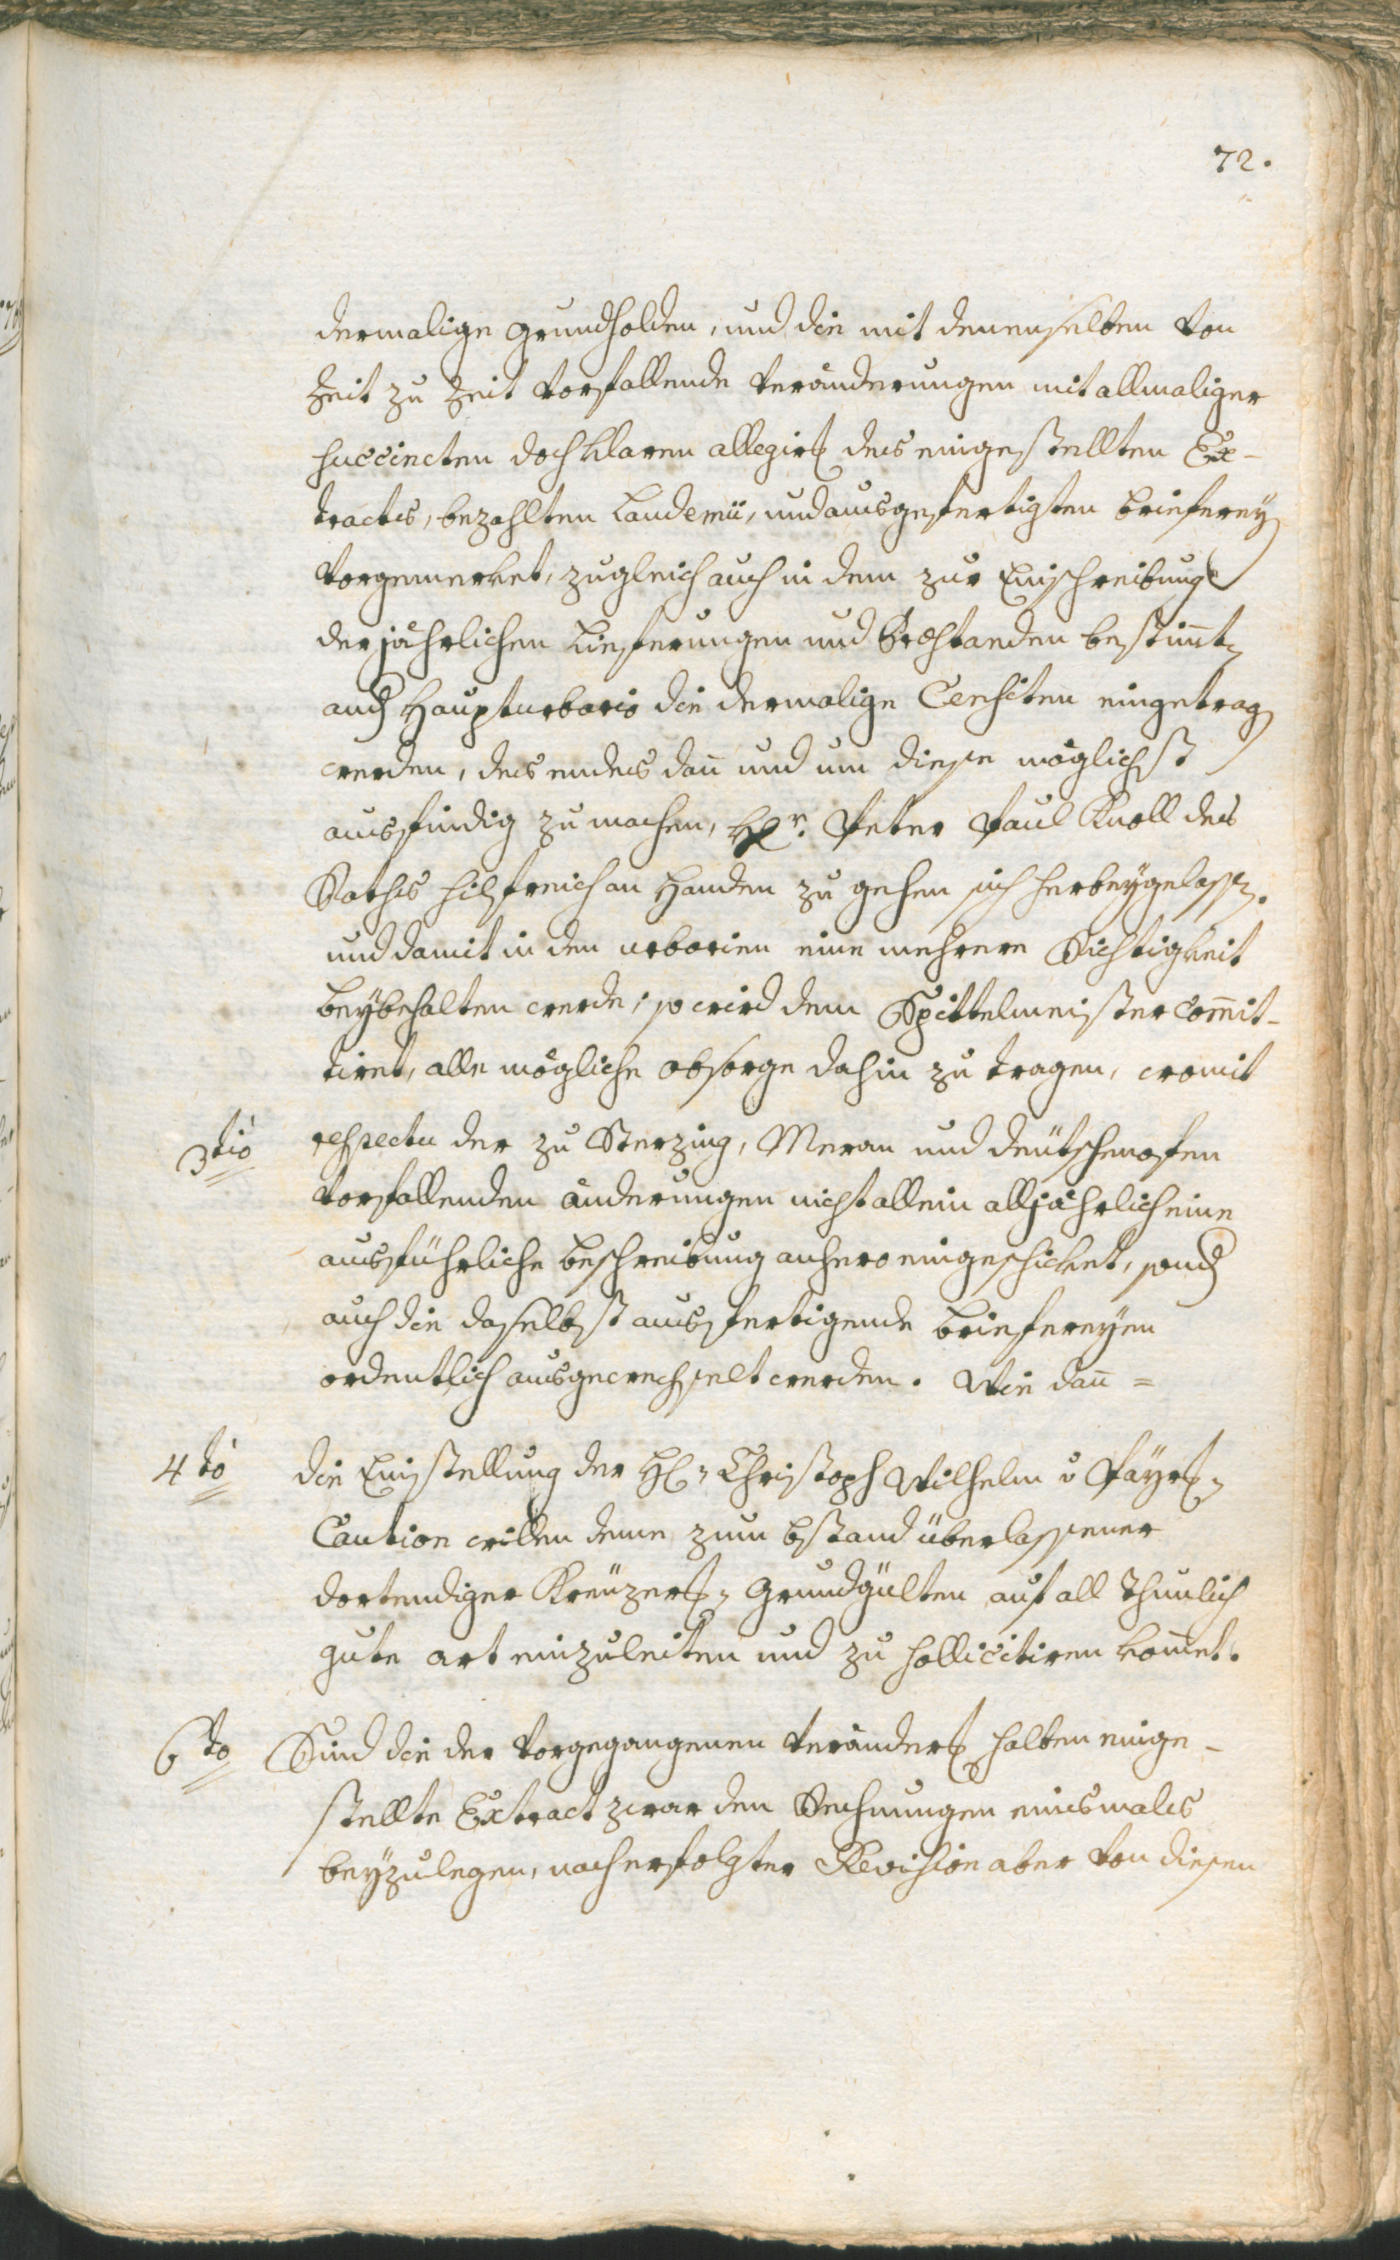 72.
dermalige grundholden, und die mit denenselben von
Zeit zu Zeit vorfallende veränderungen mit allmaliger
succincten doch klaren allegirg des eingestellten Ex-
tracts, bezahlten Laudemii, und ausgefertigten briefereÿ
vorgemerket, zugleich auch in dem zur Einschreibung
der jährlichen Lieferungen und Ausständen bestimt
and Haupturbario die dermalige Censiten eingetrag
werden, des endes dan und um diese möglichst
ausfindig zu machen, Hr. Peter Paul Knoll des
Raths hilfreich an Handen zu gehen sich herbeÿgelassen.
und damit in den urbarien eine mehrere Richtigkeit
beÿbehalten werde, so wird dem Spittelmeister Comit-
tiret, alle mögliche obsorge dahin zu tragen, womit
3tio respectu der zu Sterzing, Meran und Deütschenofen
vorfallenden änderungen nicht allein alljährlich eine
ausführliche beschreibung anhero eingeschicket, sond
auch die daselbst ausfertigende briefereÿen
ordentlich ausgewechselt werden. Wie dan =
4to die Einstellung der H: Christoph Wilhelm v Paÿrs:
Caution willen deme zum bstand überlassener
dortendiger Kreüzer: Grundgülten auf all thunlich
gute art einzuleiten und zu sollicitiren komet.
6to Sind die der vorgegangenen veränderg halben einge-
stellte Extract zwar den Rechnungen einesmals
beÿzulegen, nach erfolgter Revision aber von diesen